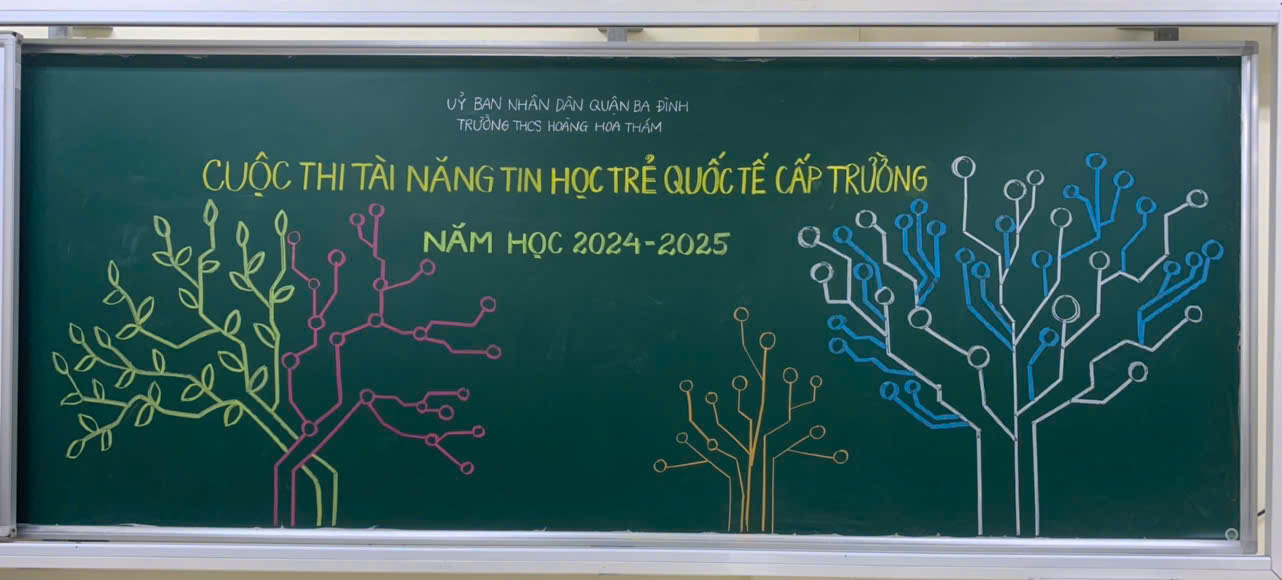 UỶ BAN NHÂN DÂN QUẬN BA ĐÌNH
TRƯỜNG THCS HOÀNG HOA THÁM
CUỘC THI TÀI NĂNG TIN HỌC TRẺ QUỐC TẾ CẤP TRƯỜNG
NĂM HỌC 2024-2025